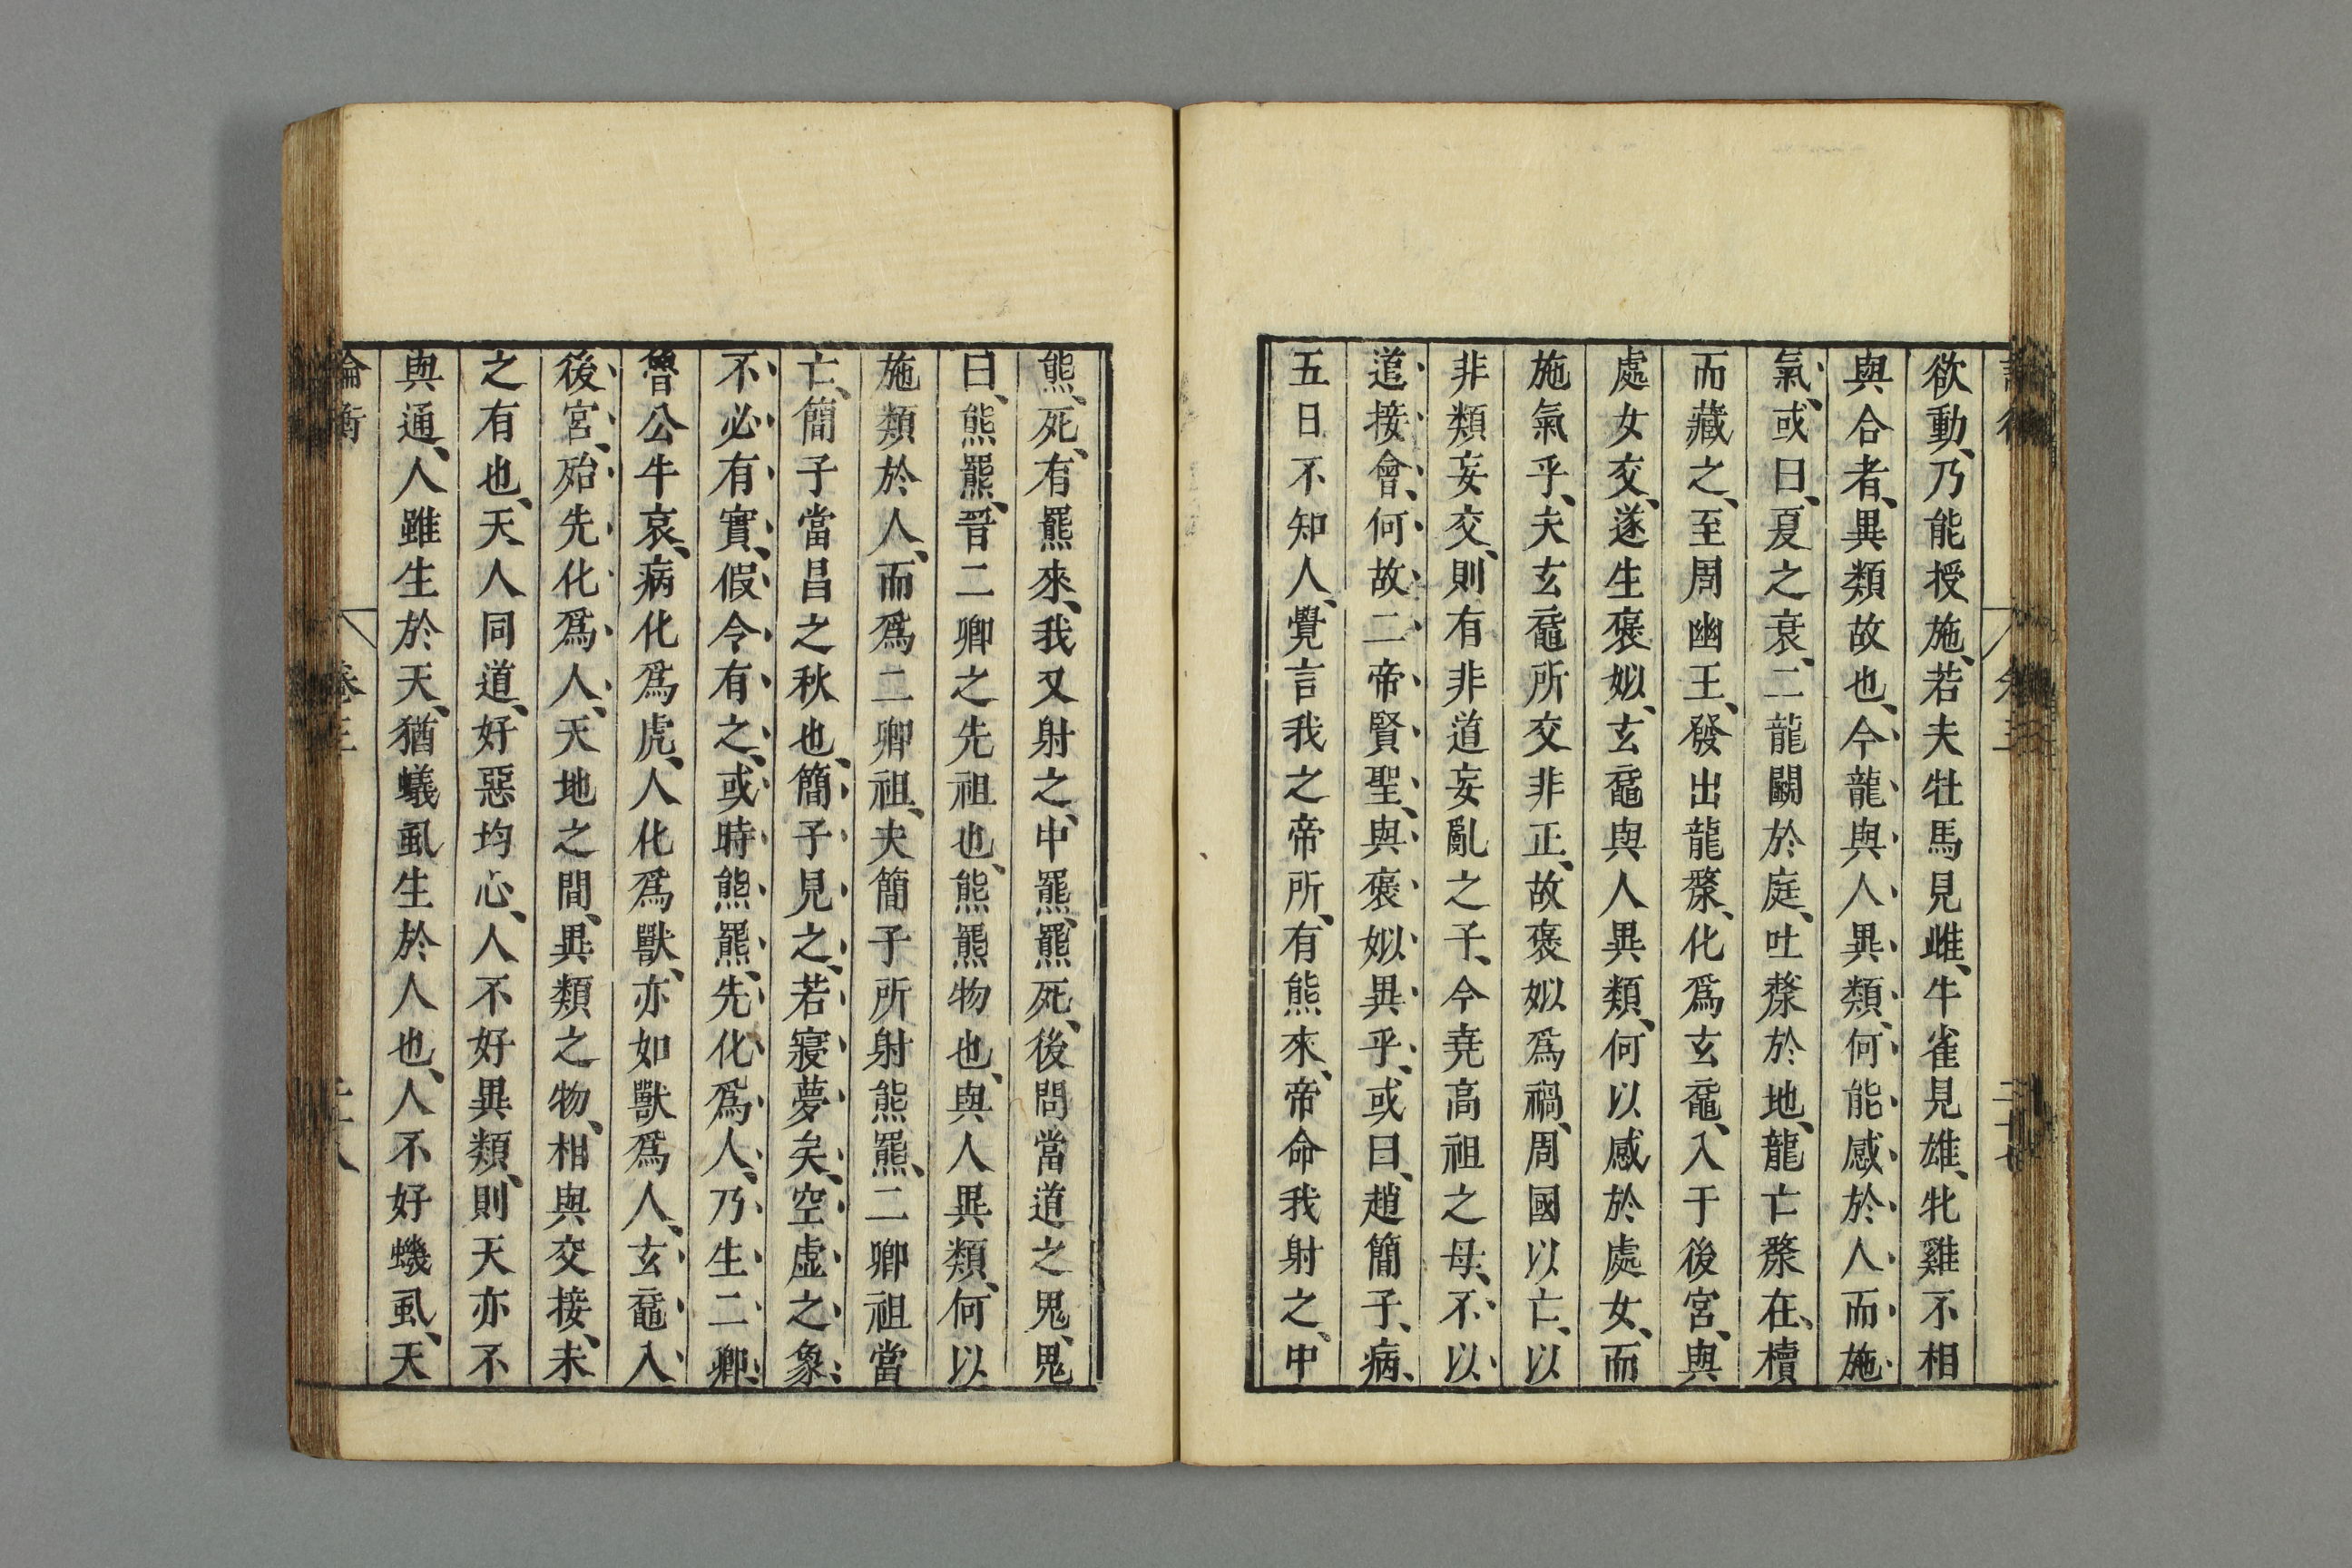 欲動、乃能授施、若夫牡馬見雌、牛雀見雄、牝雞不相
與合者、異類故也、今龍與人異類、何能感於人而施
氣、或曰、夏之衰、二龍鬬於庭、吐漦於地、龍亡漦在、櫝
而藏之、至周幽王、發出龍漦、化爲玄黿、入于後宮、與
處女交、遂生褒姒、玄黿與人異類、何以感於處女、而
施氣乎、夫玄黿所交非正、故褒姒爲禍、周國以亡、以
非類妄交、則有非道妄亂之子、今堯高祖之母、不以
道接會、何故二帝賢聖、與褒姒異乎、或曰、趙簡子、病、
五日不知人、覺言我之帝所、有熊來、帝命我射之、中
熊、死、有羆來、我又射之、中羆、羆死、後問當道之鬼、鬼
曰、熊羆、晉二卿之先祖也、熊羆物也、與人異類、何以
施類於人、而爲二卿祖、夫簡子所射熊羆、二卿祖當
亡、簡子當昌之秋也、簡子見之、若寢夢矣、空虛之象
不必有實、假令有之、或時熊羆、先化爲人、乃生二卿
魯公牛哀、病化爲虎、人化爲獸、亦如獸爲人、玄黿入
後宮、殆先化爲人、天地之間、異類之物、相與交接、未
之有也、天人同道、好惡均心、人不好異類、則天亦不
與通、人雖生於天、猶蟻虱生於人也、人不好蟣虱、天
論衡
卷三